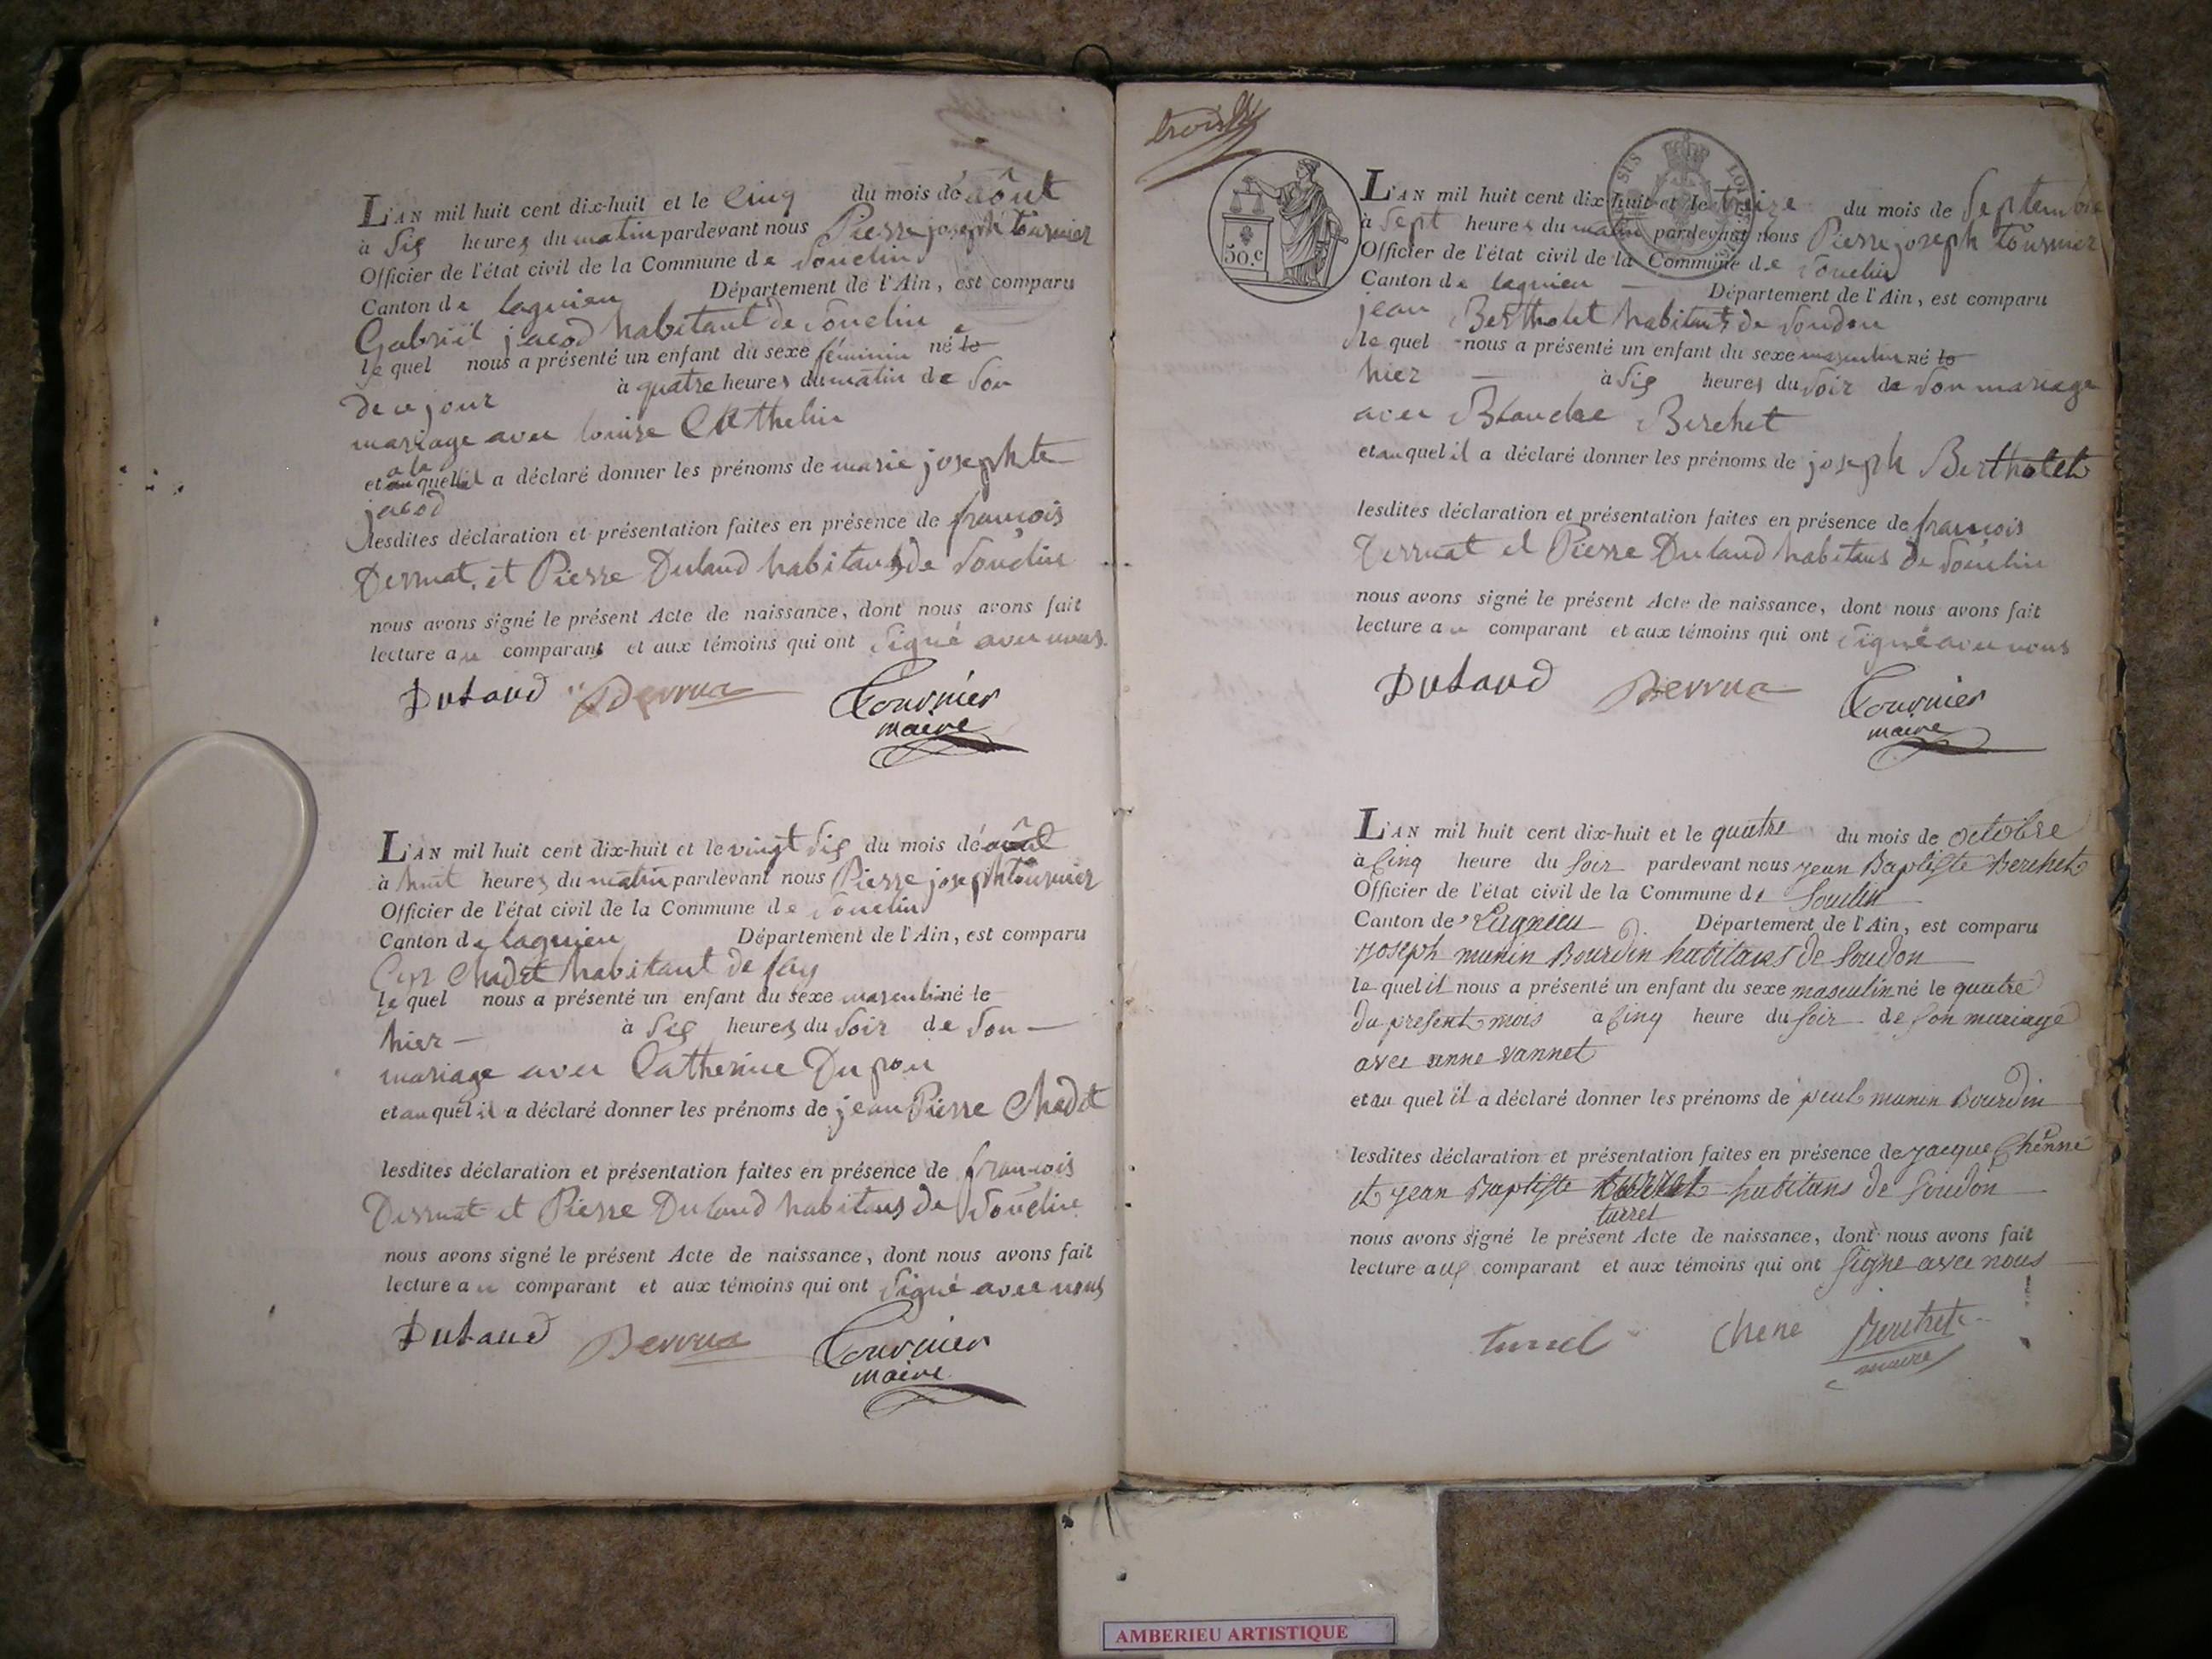 L'AN mil huit cent dix-huit et le Cinq du mois de aôut
à Six heures du matin pardevant nous Pierre joseph tournier
Officier de l'état civil de la Commune de Souclin
Canton de lagnieu Département de l'Ain, est comparu
Gabriel jacod habitant de Souclin
le quel nous a présenté un enfant du sexe féminin née le
de ce jour à quatre heures du matin de Son
mariage avec louise
et a la quelle il a déclaré donner les prénoms de marie josephte
jacod
lesdites déclaration et présentation faites en présence de françois
Derruat et Pierre Dulaud habitans de Souclin
nous avons signé le présent Acte de naissance, dont nous avons fait
lecture au comparant et aux témoins qui ont Signé avec nous.
Dulaud Derrua Tournier
maire
L'AN mil huit cent dix-huit et le vingt Six du mois de août
à huit heures du matin pardevant nous Pierre joseph tournier
Officier de l'état civil de la Commune de Souclin
Canton de lagnieu Département de l'Ain, est comparu
Chadet habitant de fay
le quel nous a présenté un enfant du sexe masculin né le
hier à Six heures du Soir de Son
mariage avec Catherine Dupon
et au quel il a déclaré donner les prénoms de jean Pierre Chadet
lesdites déclaration et présentation faites en présence de françois
Derruat et Pierre Dulaud habitans de Souclin
nous avons signé le présent Acte de naissance, dont nous avons fait
lecture au comparant et aux témoins qui ont Signé avec nous
Dulaud Derrua Tournier
maire
trois
50.c
L'AN mil huit cent dix-huit et le treize du mois de Septembre
à Sept heures du matin pardevant nous Pierre joseph tournier
Officier de l'état civil de la Commune de Souclin
Canton de lagnieu Département de l'Ain, est comparu
jean Bertholet habitant de Soudon
le quel nous a présenté un enfant du sexe masculin né le
hier à Six heures du Soir de Son mariage
avec Blanche Berchet
et au quel il a déclaré donner les prénoms de joseph Bertholet
lesdites déclaration et présentation faites en présence de françois
Derruat et Pierre Dulaud habitans de Souclin
nous avons signé le présent Acte de naissance, dont nous avons fait
lecture au comparant et aux témoins qui ont Signé avec nous
Dulaud Derrua Tournier
maire
L'AN mil huit cent dix-huit et le quatre du mois de octobre
à Cinq heure du Soir pardevant nous jean Baptiste Berchet
Officier de l'état civil de la Commune de Souclin
Canton de Lagnieu Département de l'Ain, est comparu
joseph munin Bourdin habitans de Soudon
le quel il nous a présenté un enfant du sexe masculin né le quatre
du present mois à Cinq heure du Soir de Son mariage
avec anne vannet
et au quel il a déclaré donner les prénoms de munin Bourdin
lesdites déclaration et présentation faites en présence de jacque
et jean Baptiste habitans de Soudon
turrel
nous avons signé le présent Acte de naissance, dont nous avons fait
lecture aux comparant et aux témoins qui ont Signe avec nous
turrel Chene Berchet
maire
AMBERIEU ARTISTIQUE